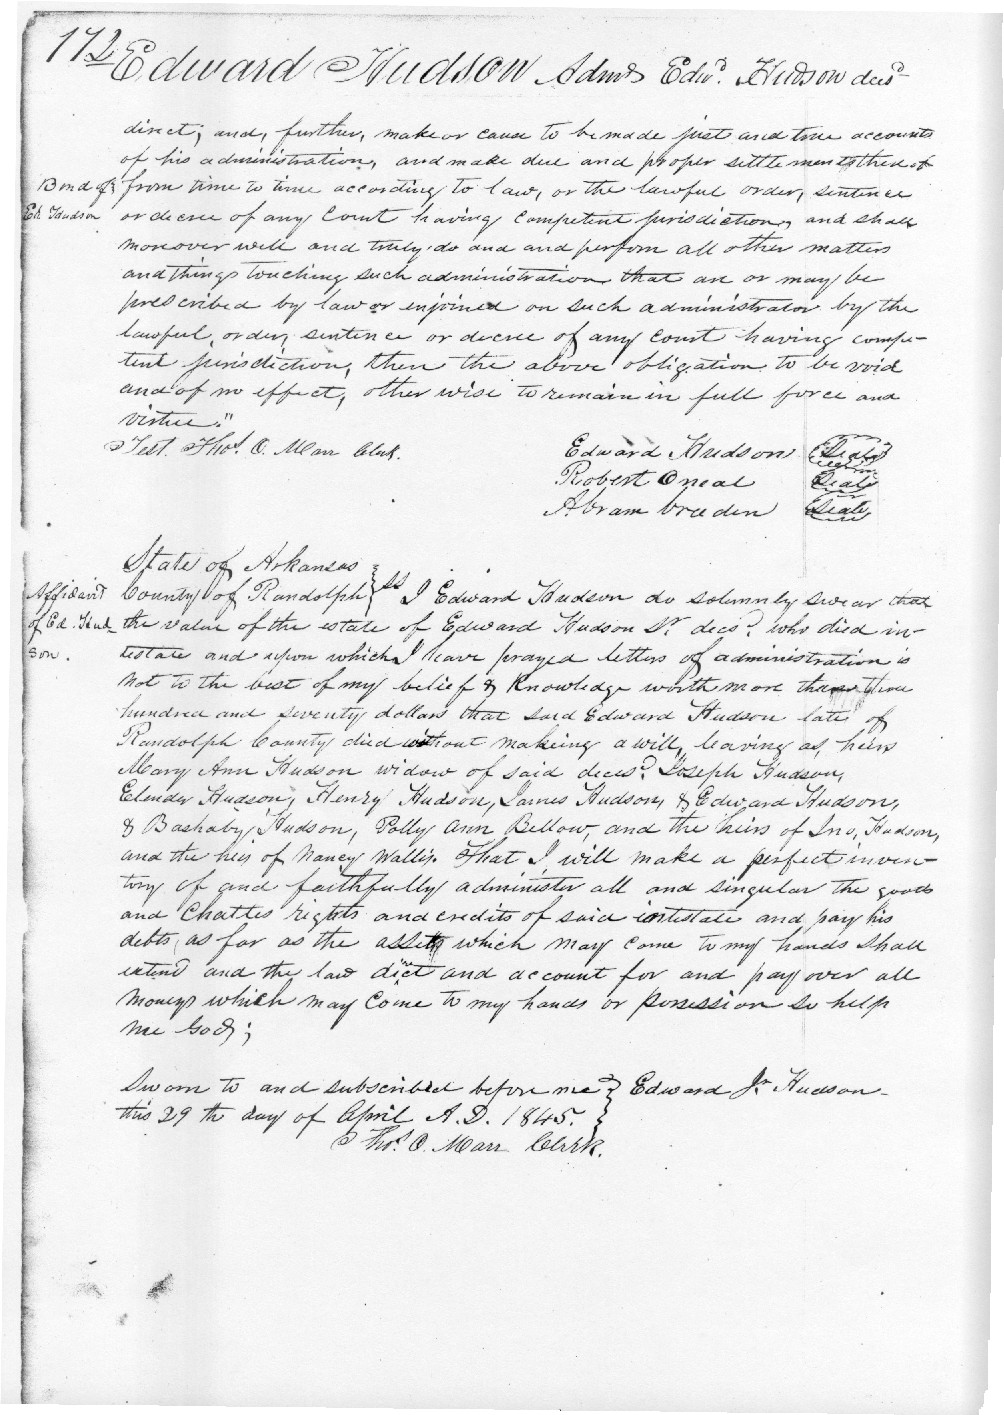 172 Edward Hudson Admr Edwd. Hudson decd
direct; and, further, make or cause to be made just and true accounts
of his administration, and make due and proper settlements thereof
Bond of from time to time according to law, or the lawful order, sentence
Ed. Hudson or decree of any Court having competent jurisdiction, and shall
moreover well and truly do and and perform all other matters
and things touching such administration that are or may be
prescribed by law or enjoined on such administrator by the
lawful, order, sentence or decree of any court having compe-
tent jurisdiction, then the above obligation to be void
and of no effect, other wise to remain in full force and
virtue."
Test. Thos. O. Marr Clerk.
Edward Hudson (Seal)
Robert Oneal (Seal)
Abram breeden (Seal)
State of Arkansas
Affidavit County of Randolph } ss I Edward Hudson do solemnly swear that
of Ed. Hud- the value of the estate of Edward Hudson Sr. decd. who died in-
son. testate and upon which I have prayed letters of administration is
not to the best of my belief & Knowledge worth more than three
hundred and seventy dollars that said Edward Hudson late of
Randolph County died without makeing a will, leaving as, heirs
Mary Ann Hudson widow of said decd. Joseph Hudson,
Elender Hudson, Henry Hudson, James Hudson, & Edward Hudson,
& Bashaby Hudson, Polly Ann Bellow, and the heirs of Jno, Hudson,
and the heis of Nancy Wallis. That I will make a perfect inven-
tory of and faithfully administer all and singular the goods
and Chattles rights and credits of said intestate and pay his
debts as far as the assets which may come to my hands shall
extend and the law dirct and account for and pay over all
moneys which may Come to my hands or possession so help
me God;
Sworn to and subscribed before me } Edward Jr. Hudson
this 29 th day of April A.D. 1845. }
Thos. O. Marr Clerk.